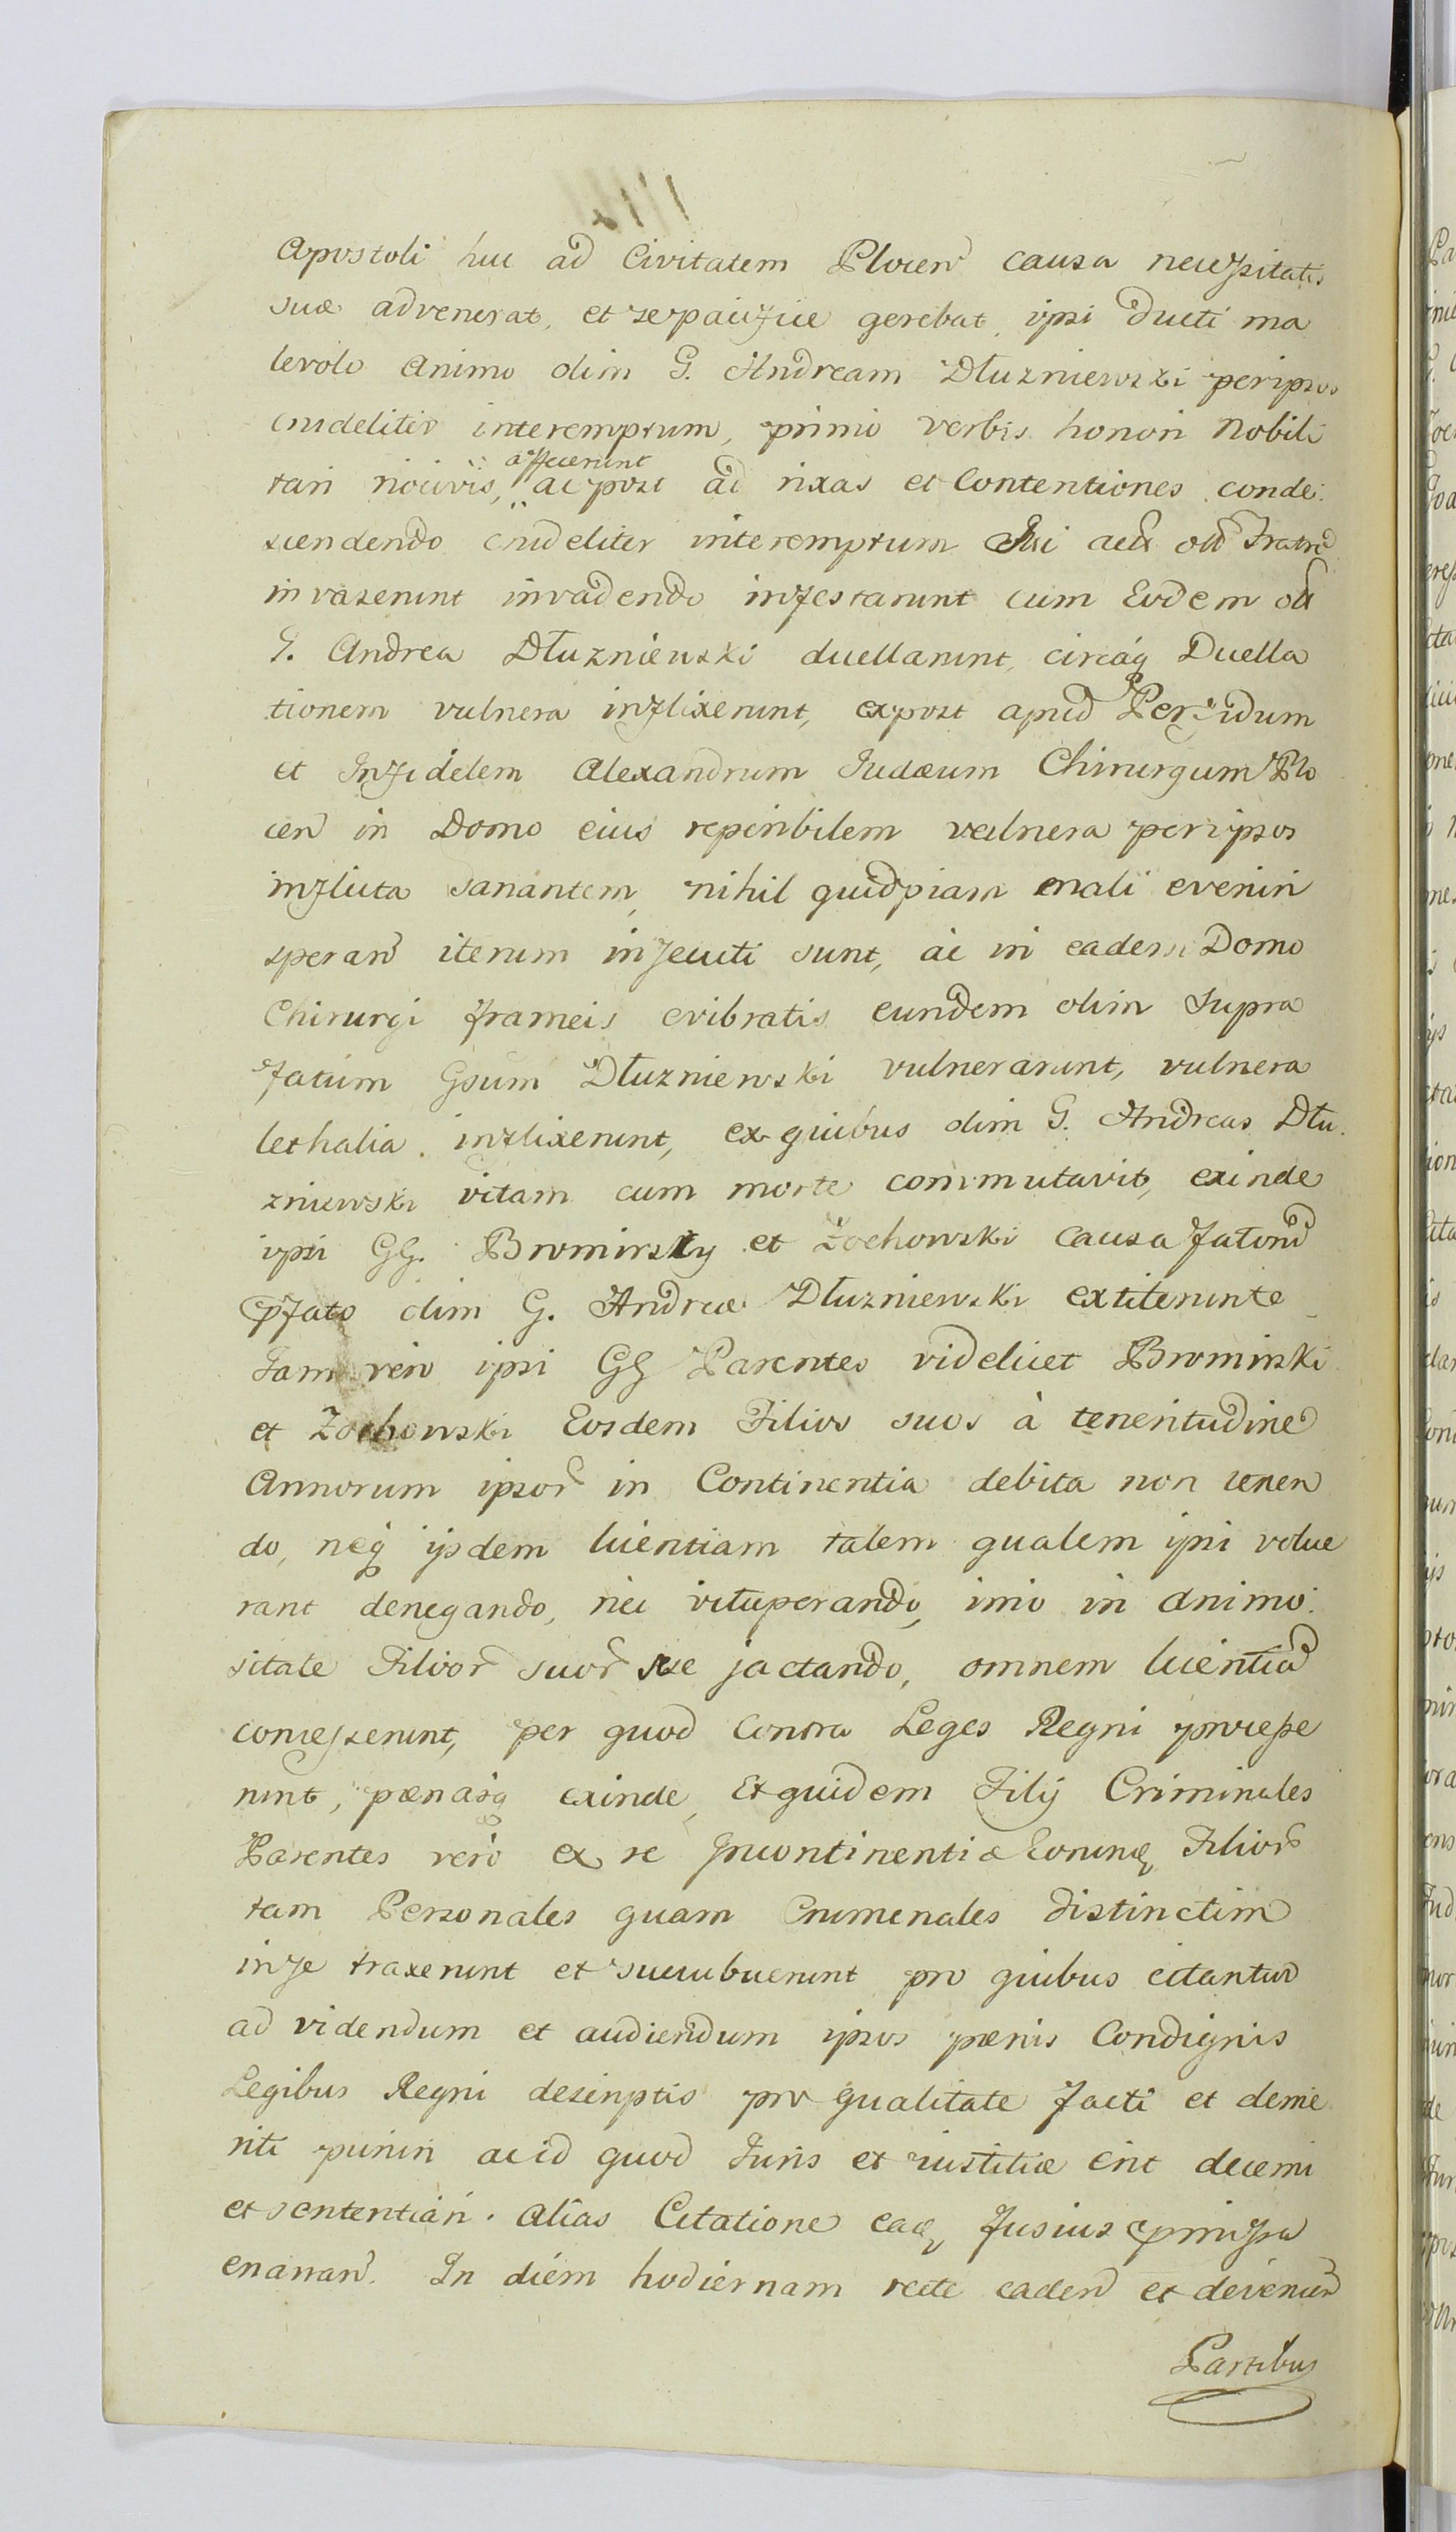 Apostoli huc ad Civitatem Plocen causa necessitatis
suæ advenerat, et se pacifice gerebat, ipsi ducti ma
levolo Animo olim G. Andream Dłuzniewski per ipsos
crudeliter interemptum, primo verbis honori Nobili
tari nocivis, affecerunt ac post ad rixas et Contentiones conde
scendendo crudeliter interemptum olim Fratre
invaserunt invadendo infestarunt cum Eodem ol
G. Andrea Dłuzniewski duellarunt, circaq Duella
tionem vulnera inflixerunt, expost apud Perfidum
et Infidelem Alexandrum Judæum Chirurgum Plo
cen in Domo eius reperibilem vulnera per ipsos
inflicta sanantem, nihil quidpiam mali eveniri
speran iterum insecuti sunt, ac in eadem Domo
Chirurgi frameis evibratis eundem olim Supra
fatum Gsum Dłuzniewski vulnerarunt, vulnera
lethalia inflixerunt, ex quibus olim G. Andreas Dłu
zniewski vitam cum morte commutavit, exinde
ipsi GG. Bromirsky et Żochowski causa fator
pfato olim G. Andreæ Dłuzniewski extiterunt
Jam vero ipsi GG Parentes videlicet Bromirski
et Zochowski Eosdem Filios suos à teneritudine
Annorum ipsor in Continentia debita non tenen
do, neq ijsdem licentiam talem qualem ipsi volue
rant denegando, nec vituperando, imo in animo
sitate Filior suor se jactando, omnem licentia
concesserunt, per quod Contra Leges Regni processe
runt, pænasq exinde, Et quidem Filij Criminales
Parentes vero ex re Incontinentiæ Eorumq Filior
tam Personales quam Crumenales distinctim
in se traxerunt et succubuerunt pro quibus citantur
ad videndum et audiendum ipsos pænis Condignis
Legibus Regni descriptis pro qualitate facti et deme
riti puniri ac id quod Juris et iustitiæ erit decerni
et sententiari. alias Citatione eaq fusius pmissa
enarran. In diem hodiernam recte caden et devenien
Partibus